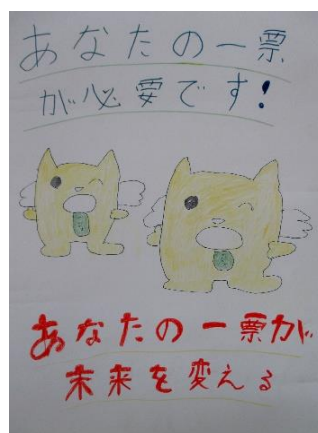 あなたの一票
が必要です!
あなたの一票が
未来を変える